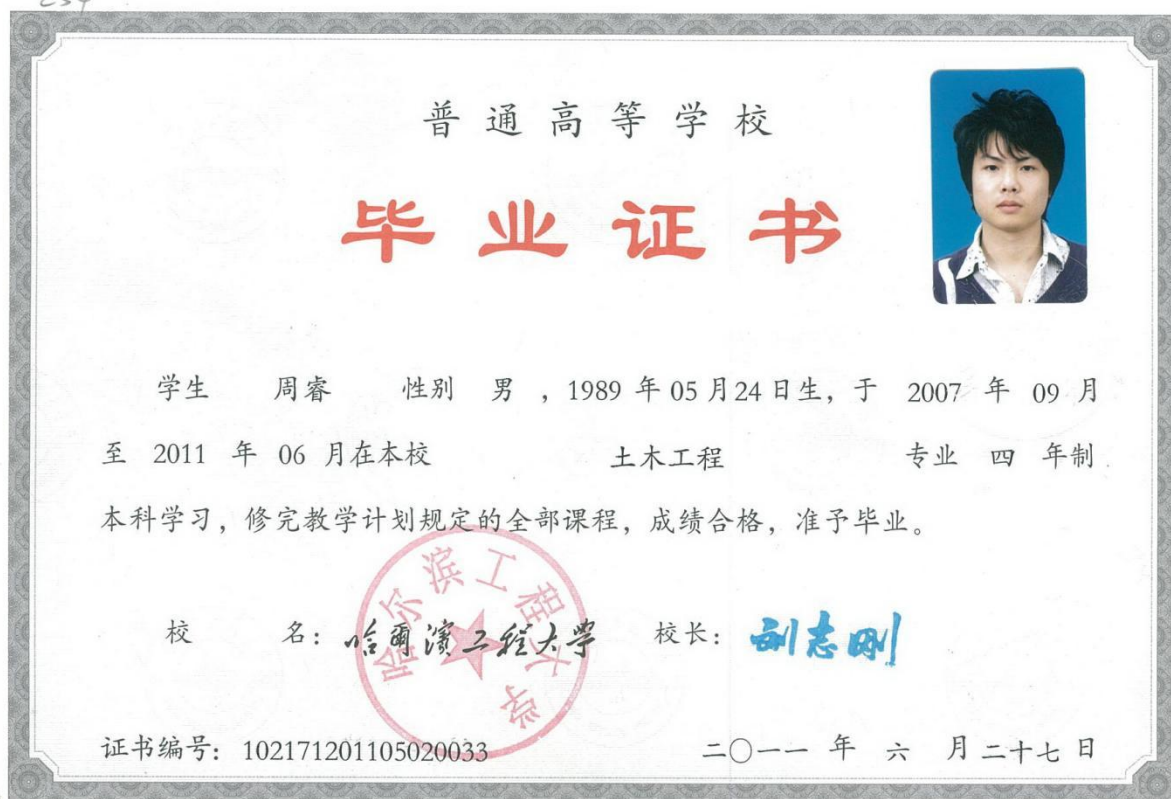 普通高等学校
毕业证书
学生 周睿 性别 男 ,1989 年 05 月 24 日生, 于 2007 年 09 月
至 2011 年 06 月在本校 土木工程 专业 四 年制
本科学习, 修完教学计划规定的全部课程, 成绩合格, 准予毕业。
校 名: 哈爾濱工程大學 校长: 刘志刚
哈尔滨工程大学
证书编号: 102171201105020033 二〇一一 年 六 月 二十七 日